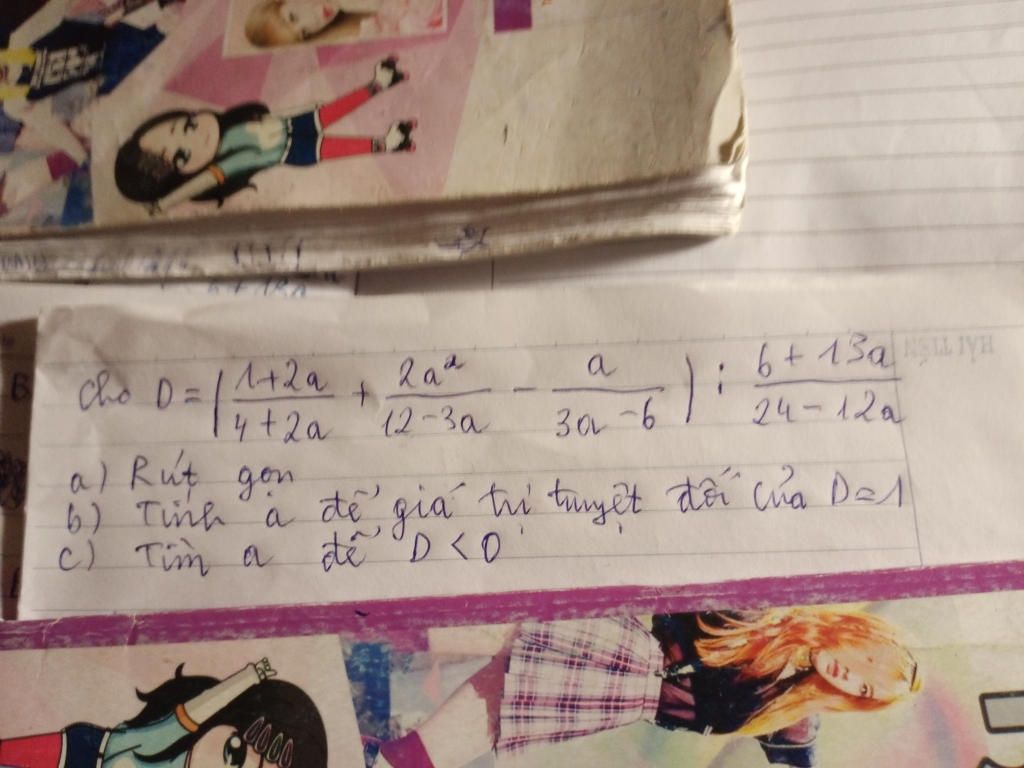 HẢI TIẾN
Cho D = ( (1+2a)/(4+2a) + 2a²/(12-3a) - a/(3a-6) ) : (6+13a)/(24-12a)
a) Rút gọn
b) Tính a để giá trị tuyệt đối của D=1
c) Tìm a để D < 0